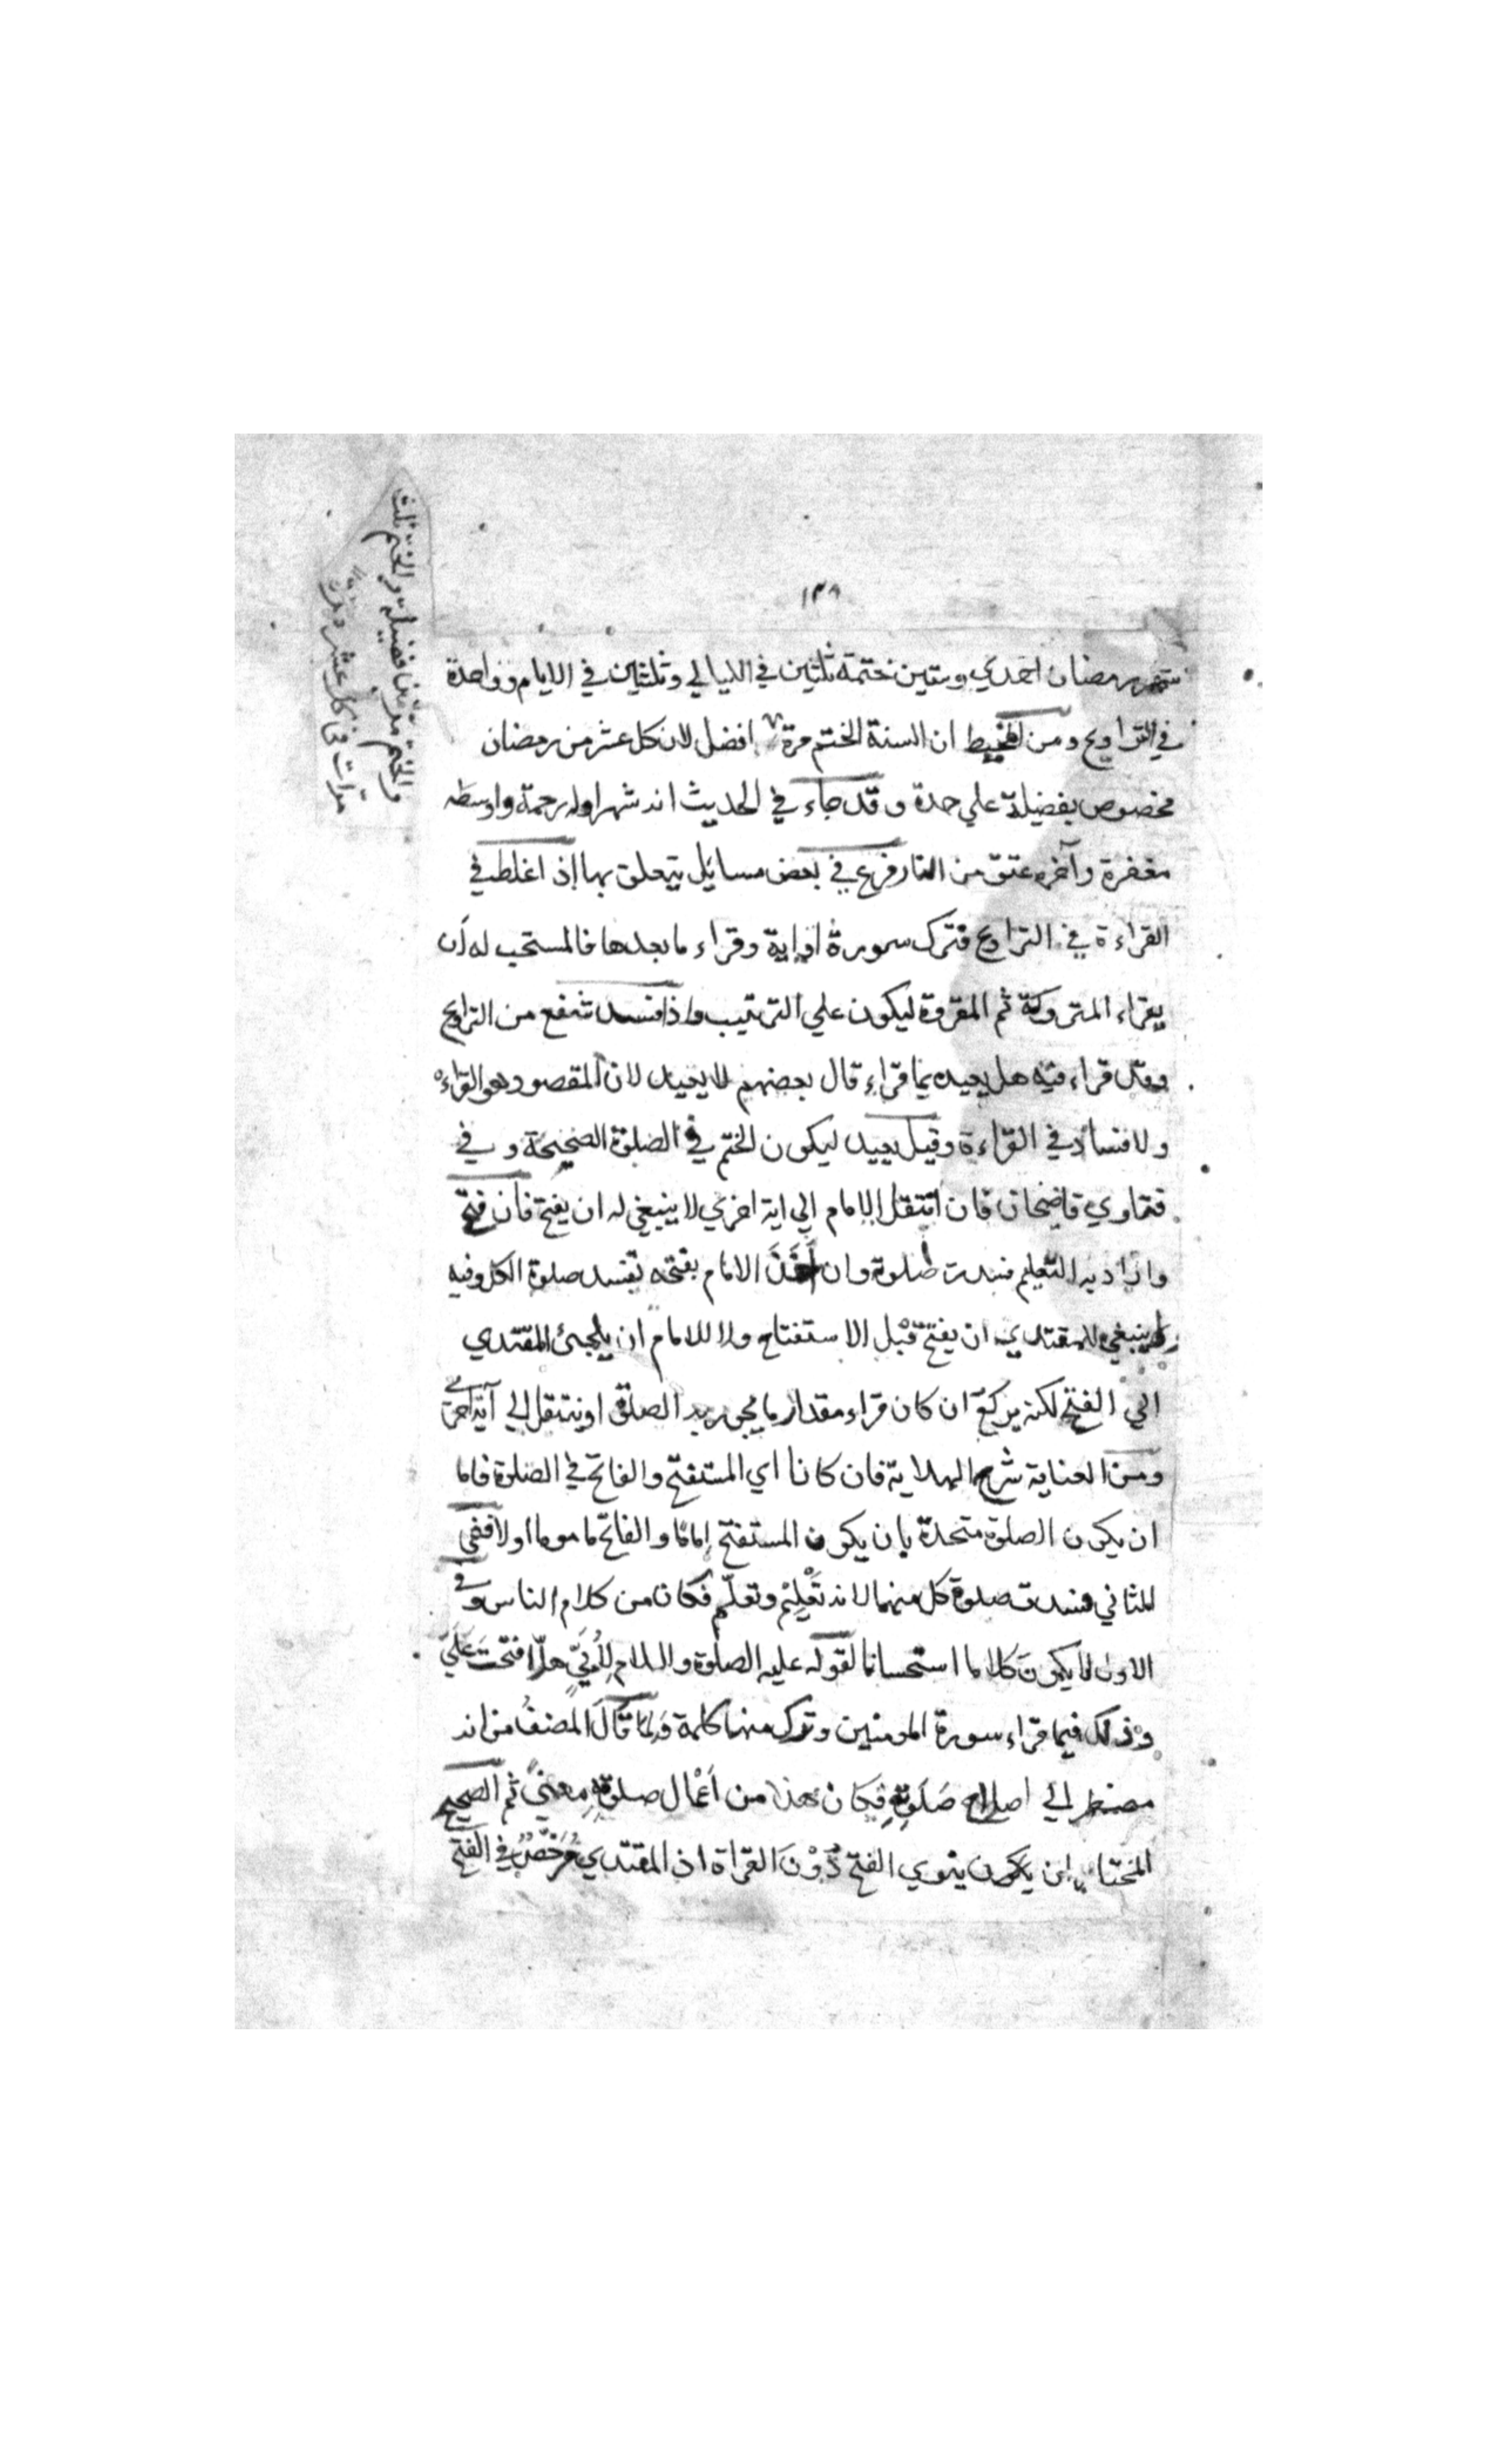 ١٣٨
شهر رمضان احدي وستين ختمة ثلثين في الليالي وثلثين في الايام وواحدة
في التراويح ومن المحيط ان السنة الختم مرة افضل لان كل عشر من رمضان
مخصوص بفضيلة علي حدة وقد جاء في الحديث انه شهر اوله رحمة واوسطه
مغفرة وآخره عتق من النار فرع في بعض مسائل يتعلق بها إذ اغلط في
القراءة في التراويح فترك سورة او اية وقراء ما بعدها فالمستحب له أن
يقراء المتروكة ثم المقروة ليكون علي الترتيب واذا فسد شفع من التراويح
وقد قراء فيه هل يعيد بما قراء قال بعضهم لا يعيد لان المقصود هو القراءة
ولا فساد في القراءة وقيل يعيد ليكون الختم في الصلوة الصحيحة وفي
فتاوي قاضخان فان انتقل الامام الي اية اخري لا ينبغي له ان يفتح فان فتح
واراد به التعليم فسدت صلوة وان أخذ الامام بفتحه تفسد صلوة الكل وفيه
لا ينبغي للمقتدي ان يفتح قبل الاستفتاح ولا للامام ان يلجئ المقتدي
الي الفتح لكنه يركع ان كان قراء مقدار ما يجوز به الصلوة او ينتقل الي آية اخري
ومن العناية شرح الهداية فان كانا اي المستفتح والفاتح في الصلوة فاما
ان يكون الصلوة متحدة بان يكون المستفتح إماما والفاتح ماموما اولا ففي
الثاني فسدت صلوة كل منهما لانه تعليم وتعلم فكان من كلام الناس وفي
الاول لا يكون كلاما استحسانا لقوله عليه الصلوة والسلام لأبيّ هلّا فتحت عليّ
وذلك فيما قراء سورة المومنين وترك منها كلمة ولما قال المصنف من انه
مضطر الي اصلاح صلوته فكان هذا من اعمال صلوته معني ثم الصحيح
المختار ان يكون ينوي الفتح دون القراة اذ المقتدي مرخص في الفتح
والختم مرتين فضيلة والختم ثلث
مرات في كل عشر مرة